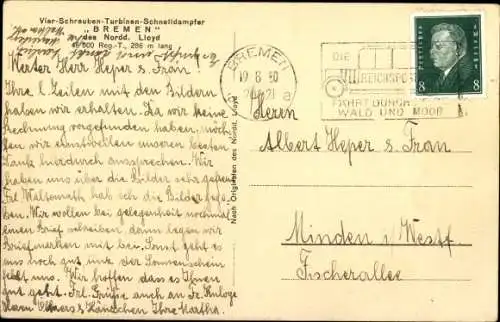 Vier-Schrauben-Turbinen-Schnelldampfer
„BREMEN"
des Nordd. Lloyd
46 500 Reg.-T., 286 m lang
Werter Herr Heper u. Frau!
Ihre l. Zeilen mit den Bildern
haben wir erhalten. Da wir keine
Rechnung vorgefunden haben, möch-
ten wir einstweilen unseren besten
Dank hierdurch aussprechen. Wir
haben uns über die Bilder sehr gefreut
Frl. Maltomath hat die Bilder
ben. Wir wollen bei gelegenheit nochmal
einen Brief schreiben, dann legen wir
Briefmarken mit bei. Sonst geht es
uns noch gut nur der Sonnenschein
fehlt uns. Wir hoffen dass es Ihnen
gut geht. Frl. Grüsse auch an Fr. Kluge
Herrn u. Hänschen Ihre Martha.
Nach Originalen des Nordd. Lloyd
BREMEN
8 30
a
DIE
REICHSPOST
FÄHRT DURCH
WALD UND MOOR
8 8
Herrn
Albert Heper u. Frau
Minden i/ Westf.
Fischerallee